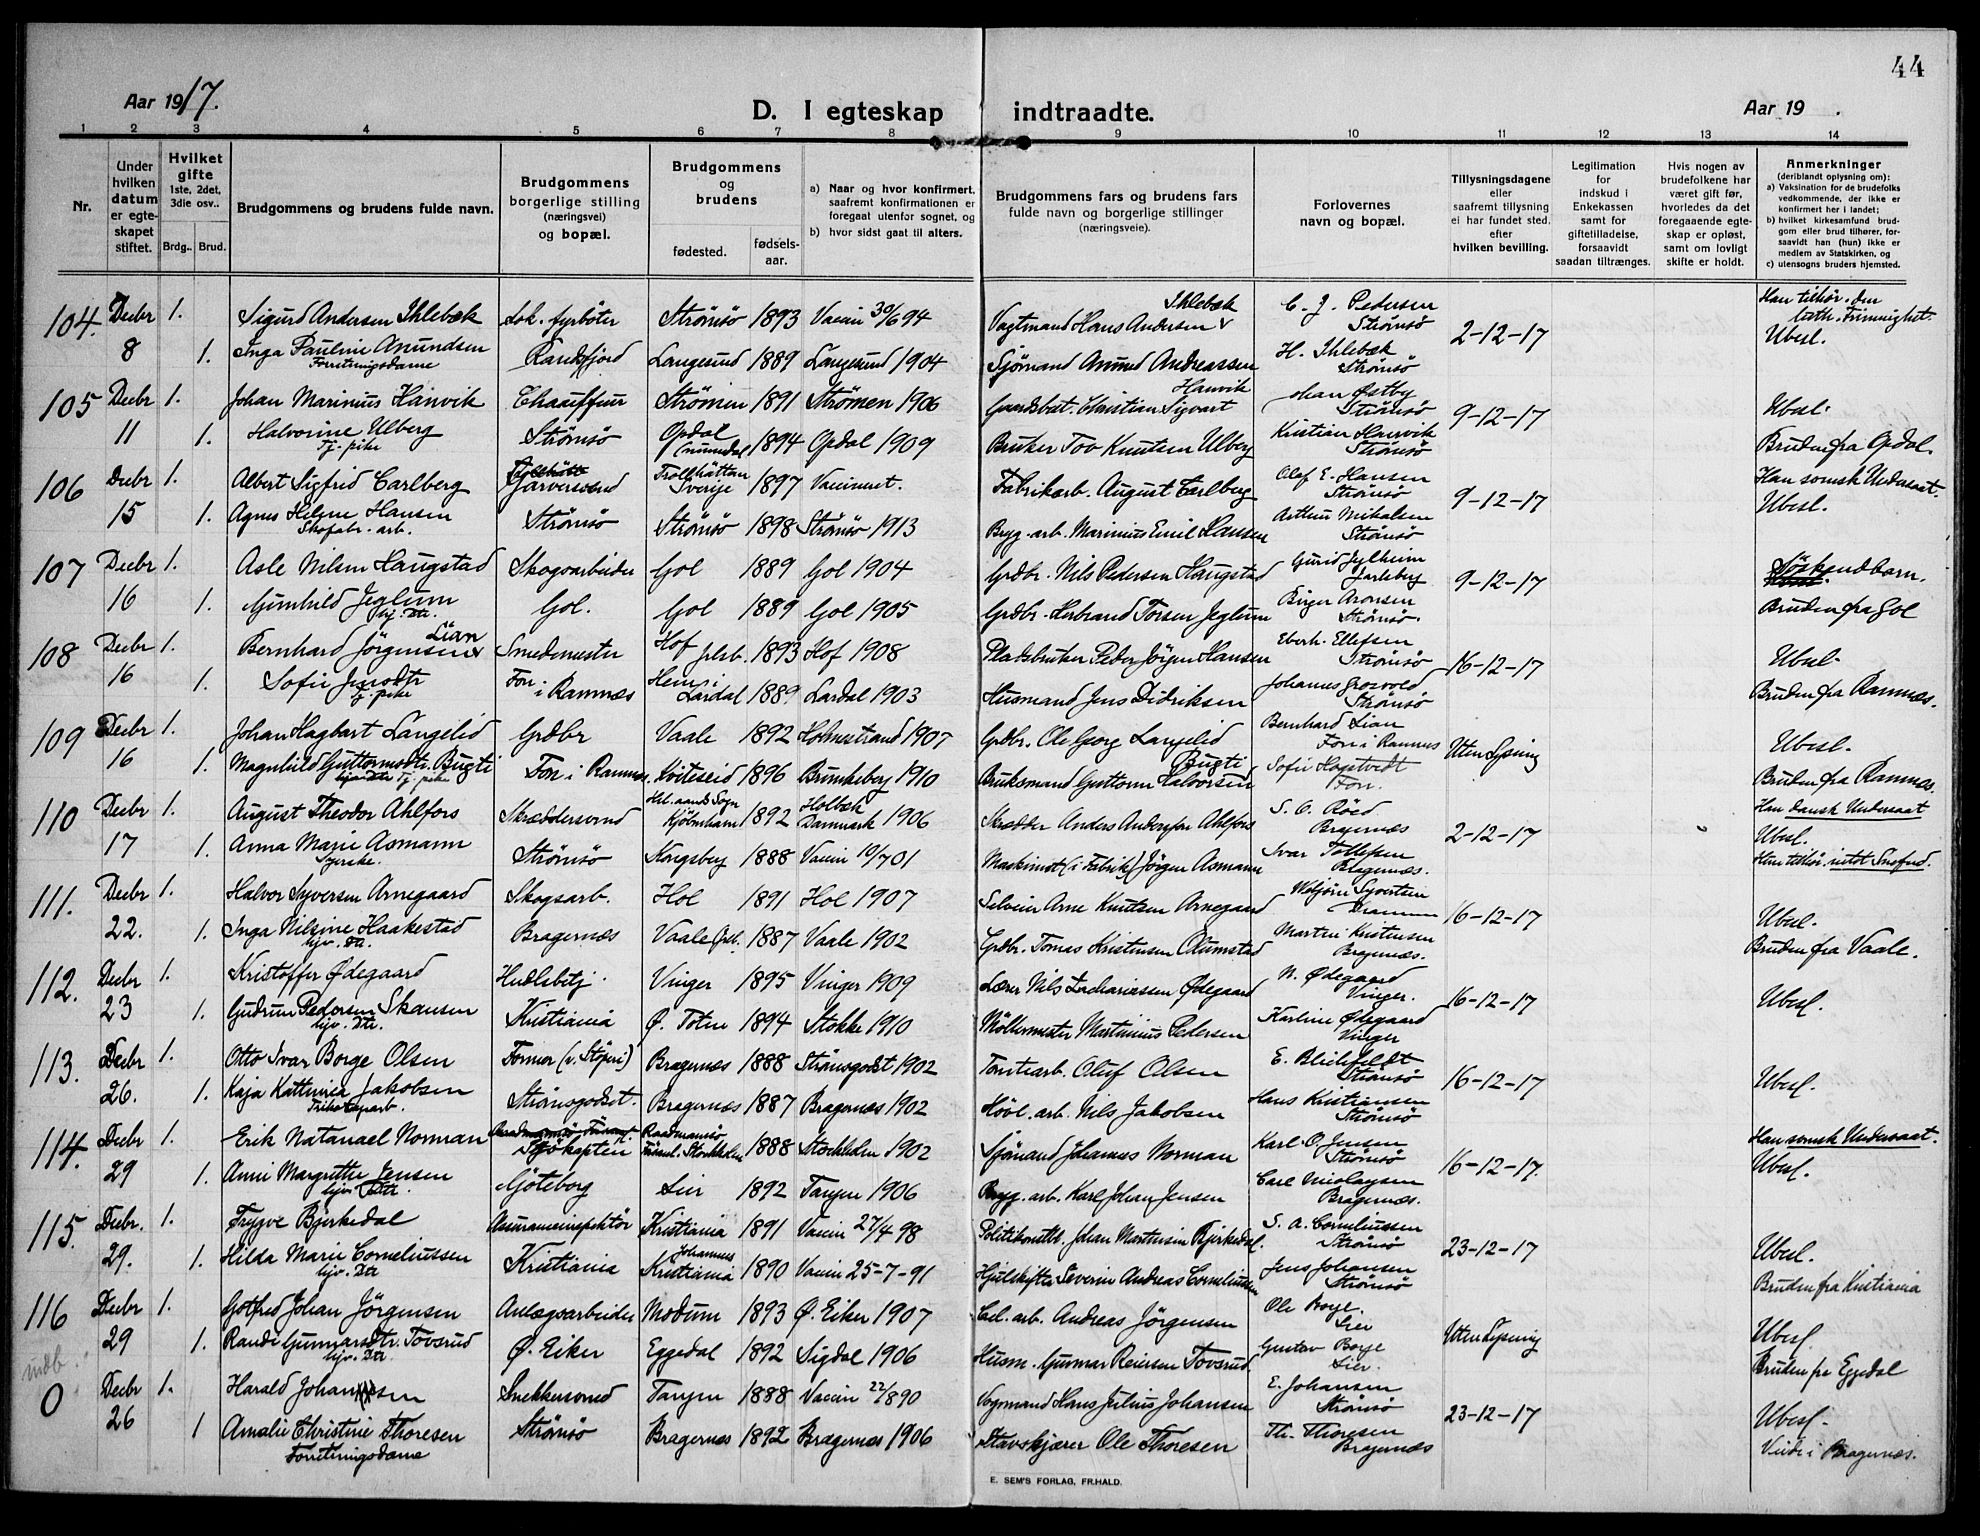 44
Aar 1917.
D. I egteskap indtraadte.
Aar 19 .
1 2 3 4 5 6 7 8 9 10 11 12 13 14
Nr.
Under hvilken datum er egteskapet stiftet.
Hvilket gifte 1ste, 2det, 3die osv..
Brdg.. Brud.
Brudgommens og brudens fulde navn.
Brudgommens borgerlige stilling (næringsvei) og bopæl.
Brudgommens og brudens
fødested. fødselsaar.
a) Naar og hvor konfirmert, saafremt konfirmationen er foregaat utenfor sognet, og
b) hvor sidst gaat til alters.
Brudgommens fars og brudens fars fulde navn og borgerlige stillinger (næringsveie).
Forlovernes navn og bopæl.
Tillysningsdagene eller saafremt tillysning ei har fundet sted. efter hvilken bevilling.
Legitimation for indskud i Enkekassen samt for giftetilladelse, forsaavidt saadan tiltrænges.
Hvis nogen av brudefolkene har været gift før, hvorledes da det foregaaende egteskap er opløst, samt om lovligt skifte er holdt.
Anmerkninger (deriblandt oplysning om):
a) Vaksination for de brudefolks vedkommende, der ikke er konfirmert her i landet;
b) hvilket kirkesamfund brudgom eller brud tilhører, forsaavidt han (hun) ikke er medlem av Statskirken, og
c) utensogns bruders hjemsted.
104 Decbr 1. Sigurd Andersen Ihlebæk Lok. fyrbøter Strømsø 1893 Vaccin 30/6 94 Vagtmand Hans Andersen Ihlebæk C. J. Pedersen Strømsø 2-12-17 Han tilhør. den luth. Frimenighet.
8 1. Inga Pauline Anundsen Forretningsdame Randsfjord Langesund 1889 Langesund 1904 Sjømand Anund Andreassen H. Ihlebæk Strømsø Ubesl.
105 Decbr 1. Johan Marinius Hanvik Chauffeur Strømmen 1891 Strømen 1906 Gaardsbat. Christian Sigvart Hanvik Johan Østby Strømsø 9-12-17 Ubesl.
11 1. Halvorine Ulberg Tj. pike Strømsø Opdal Numedal 1894 Opdal 1909 Bruker Tov Knutsen Ulberg Kristian Hanvik Strømsø Bruden fra Opdal.
106 Decbr 1. Albert Sigfrid Carlberg Garversvend Trollhättan Sverige 1897 Vaccineret. Fabrikarb. August Carlberg Olaf E. Hansen Strømsø 9-12-17 Han svensk Undersaat.
15 1. Agnes Helene Hansen Skofabr. arb. Strømsø Strømsø 1898 Strømsø 1913 Bryg. arb. Marinius Emil Hansen Arthur Mikalsen Strømsø Ubesl.
107 Decbr 1. Asle Nilsen Haugstad Skogsarbeider Gol 1889 Gol 1904 Grdbr. Nils Pedersen Haugstad Guri Jylheim Jarleberg 9-12-17 Søskendbarn.
16 1. Gunhild Jeglum hj. Dtr. Gol. Gol 1889 Gol 1905 Grdbr. Herbrand Torsen Jeglum Birger Aronsen Strømsø. Bruden fra Gol
108 Decbr 1. Bernhard Jörgensen Lian Smedemester Hof Jrlsb. 1893 Hof 1908 Pladsbruker Peder Jörgen Hansen Eberh. Ellefsen Strømsø 16-12-17 Ubesl.
16 1. Sofie Jensdtr Tj. pike Fon i Ramnæs Hem i Lardal 1889 Lardal 1903 Husmand Jens Didriksen Johannes Grosvold Strømsø Bruden fra Ramnæs.
109 Decbr 1. Johan Hagbart Langelid Grdbr Vaale 1892 Holmestrand 1907 Grdbr. Ole Georg Langelid Bernhard Lian Fon i Ramnes Uten Lysning Ubesl.
16 1. Magnhild Guttormsdtr. Bugti hjv. Dtr. Tj. pike Fon i Ramnes. Kviteseid 1896 Brunkeberg 1910 Bruksmand Guttorm Halvorsen Bugti Sofie Hogstvedt Fon. Bruden fra Ramnæs.
110 Decbr 1. August Theodor Ahlfors Skræddersvend Hel. aands Sogn Kjøbenhavn 1892 Holbæk Danmark 1906 Skrædder Anders Andersson Ahlfors S. O. Röed Bragernæs 2-12-17 Han dansk Undersaat
17 1. Anna Marie Asmann Syerske. Strømsø Kongsberg 1888 Vaccin 19/7 01 Maskinist (i Fabrik) Jörgen Asmann Ivar Tollefsen Bragernæs. Ubesl. Hun tilhør. intet Snsfnd.
111. Decbr 1. Halvor Syversen Arnegaard Skogsarb. Hol 1891 Hol 1907 Selveier Arne Knutsen Arnegaard Syvertsen Drammen 16-12-17 Ubesl.
22. 1. Inga Nilsine Haakestad hjv. Dtr. Bragernæs Vaale 1887 Vaale 1902 Grdbr. Tomas Kristensen Olumstad Martin Kristensen Bragernæs. Bruden fra Vaale.
112. Decbr 1. Kristoffer Ødegaard Hudlebetj. Vinger 1895 Vinger 1909 Lærer Nils Zachariassen Ødegaard N. Ødegaard Vinger. 16-12-17 Ubesl.
23 1. Gudrun Pedersen Skansen hjv. Dtr. Kristiania Ø. Toten 1894 Stokke 1910 Möllermester Martinius Pedersen Karline Ødegaard Vinger
113. Decbr 1. Otto Ivar Borge Olsen Former (v. Støperi) Bragernæs 1888 Strømsgodset 1902 Tomtearb. Oluf Olsen E. Blichfeldt Strømsø 16-12-17 Ubesl.
26. 1. Kaja Kathinka Jakobsen Trikotagearb. Strømsgodset. Bragernæs 1887 Bragernæs 1902 Høvl. arb. Nils Jakobsen Hans Kristiansen Strømsø
114. Decbr 1. Erik Natanael Norman Sjökapten Raadmansö Försml. Stockholm 1888 Stockholm 1902 Sjömand Johannes Norman Karl. O. Jensen Strømsø 16-12-17. Han svensk Undersaat.
29 1. Anni Margrethe Jensen hjv. Dtr. Göteborg Lier 1892 Tangen 1906 Bryg. arb. Karl Johan Jensen Carl Nicolaysen Bragernæs. Ubesl.
115. Decbr. 1. Trygve Bjerkedal Assuranceinspektör Kristiania 1891 Vaccin 27/4 98 Politikonstb. Johan Martinsen Bjerkedal. S. A. Corneliussen Strømsø 23-12-17 Ubesl.
29. 1. Hilda Marie Corneliussen hjv. Dtr Kristiania Johannes Kristiania 1890 Vaccin 25-7-91 Hjulskifter Severin Andreas Corneliussen Jens Johansen Strømsø Bruden fra Kristiania
116 Decbr 1. Gotfred Johan Jörgensen Anlægsarbeider Modum 1893 Ø. Eiker 1907 Cel. arb. Andreas Jörgensen Ole Borge. Lier Uten Lysning Ubesl.
29 1. Randi Gunnarsdtr. Tovsrud hjv. Dtr. Ø. Eiker Eggedal 1892 Sigdal 1906 Husm. Gunnar Reiersen Tovsrud Gustav Borge Lier. Bruden fra Eggedal
indb
0 Decbr 1. Harald Johansen Snekkersvend Tangen 1888 Vaccin 22/8 90 Vognmand Hans Julius Johansen E. Johansen Strømsø 23-12-17 Ubesl.
26 1 Amalie Christine Thoresen Forretningsdame Strømsø Bragernæs 1892 Bragernæs 1906 Stavskjærer Ole Thoresen Th. Thoresen Bragernæs Viede i Bragernæs.
E. SEM'S FORLAG, FR.HALD.